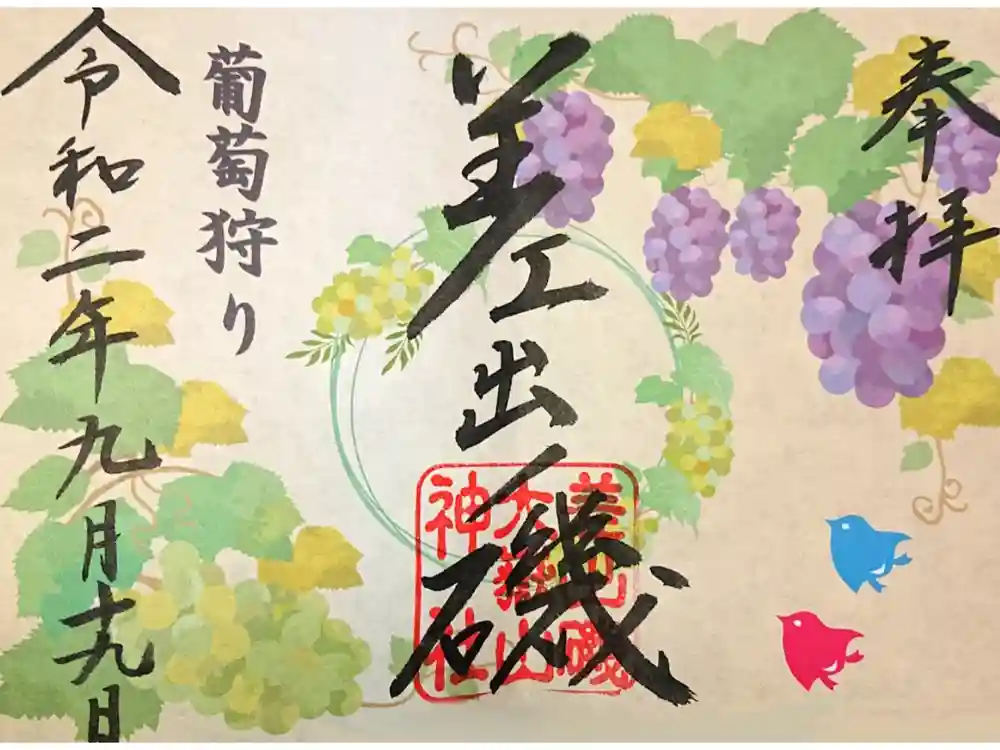 奉拝
差出ノ磯
差出磯
大嶽山
神社
葡萄狩り
令和二年九月十九日